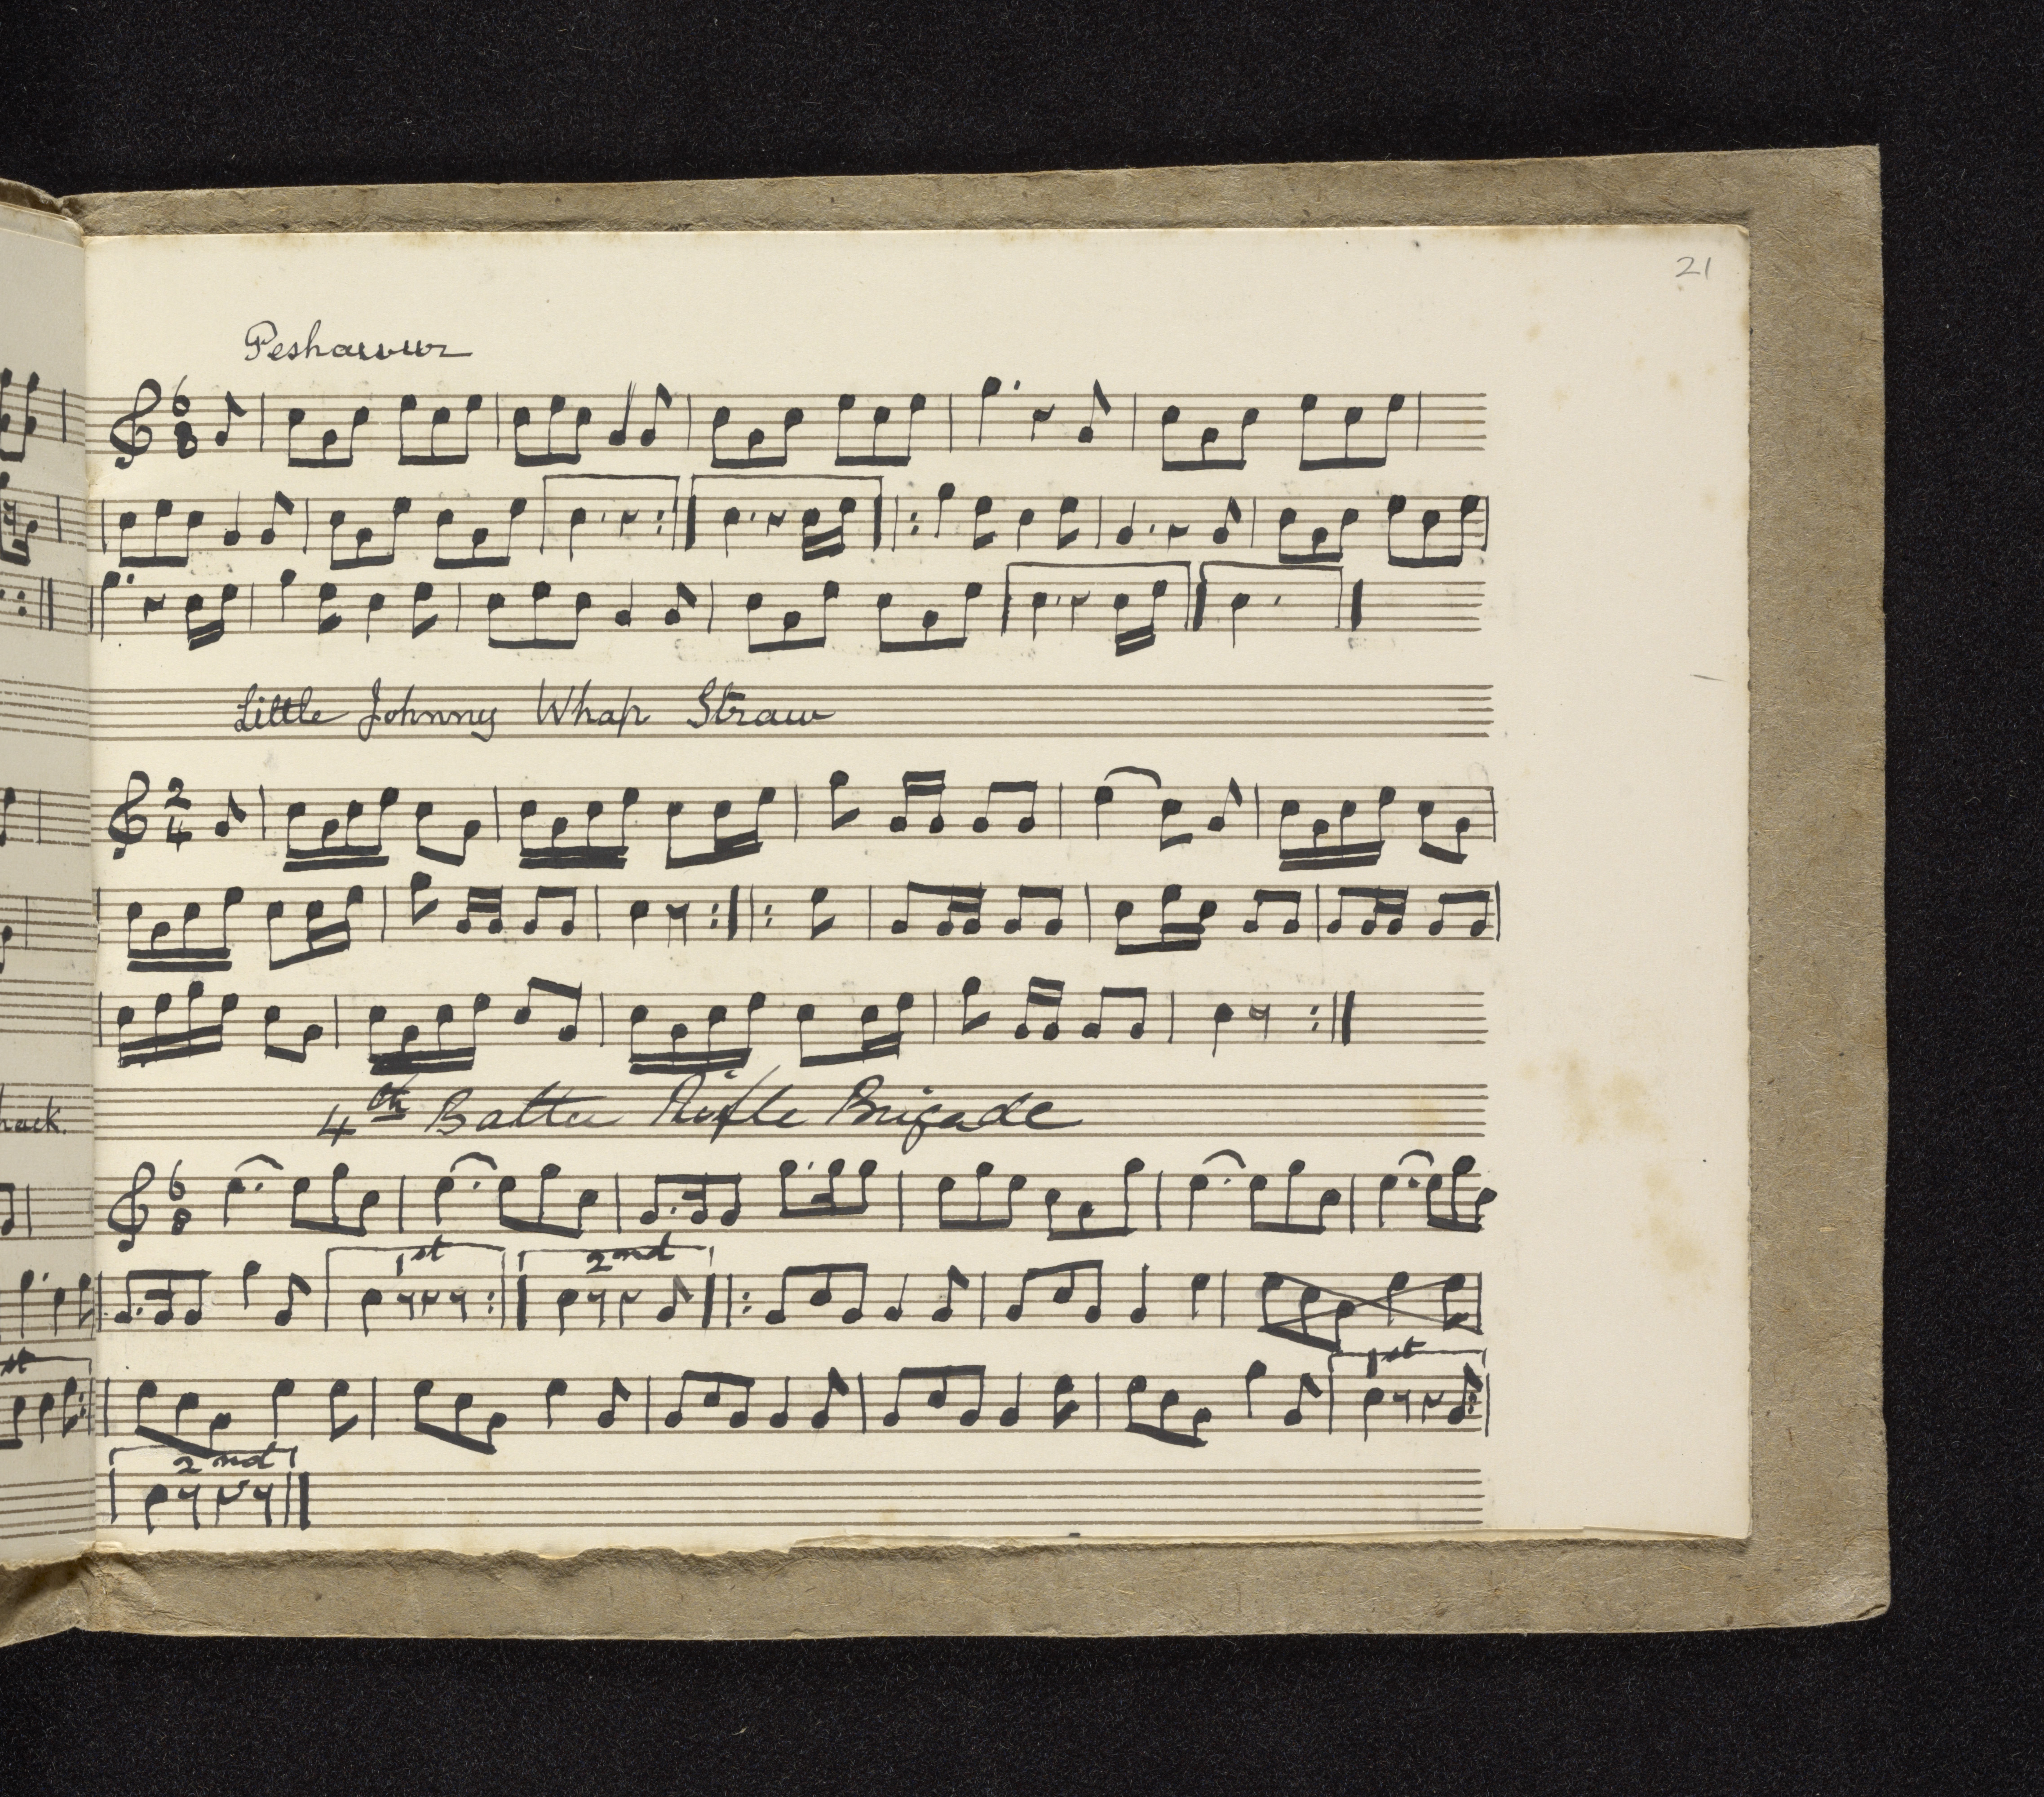 21
Peshawur
Little Johnny Whap Straw
4th Batter Rifle Brigade
1st
2nd
1st
2nd